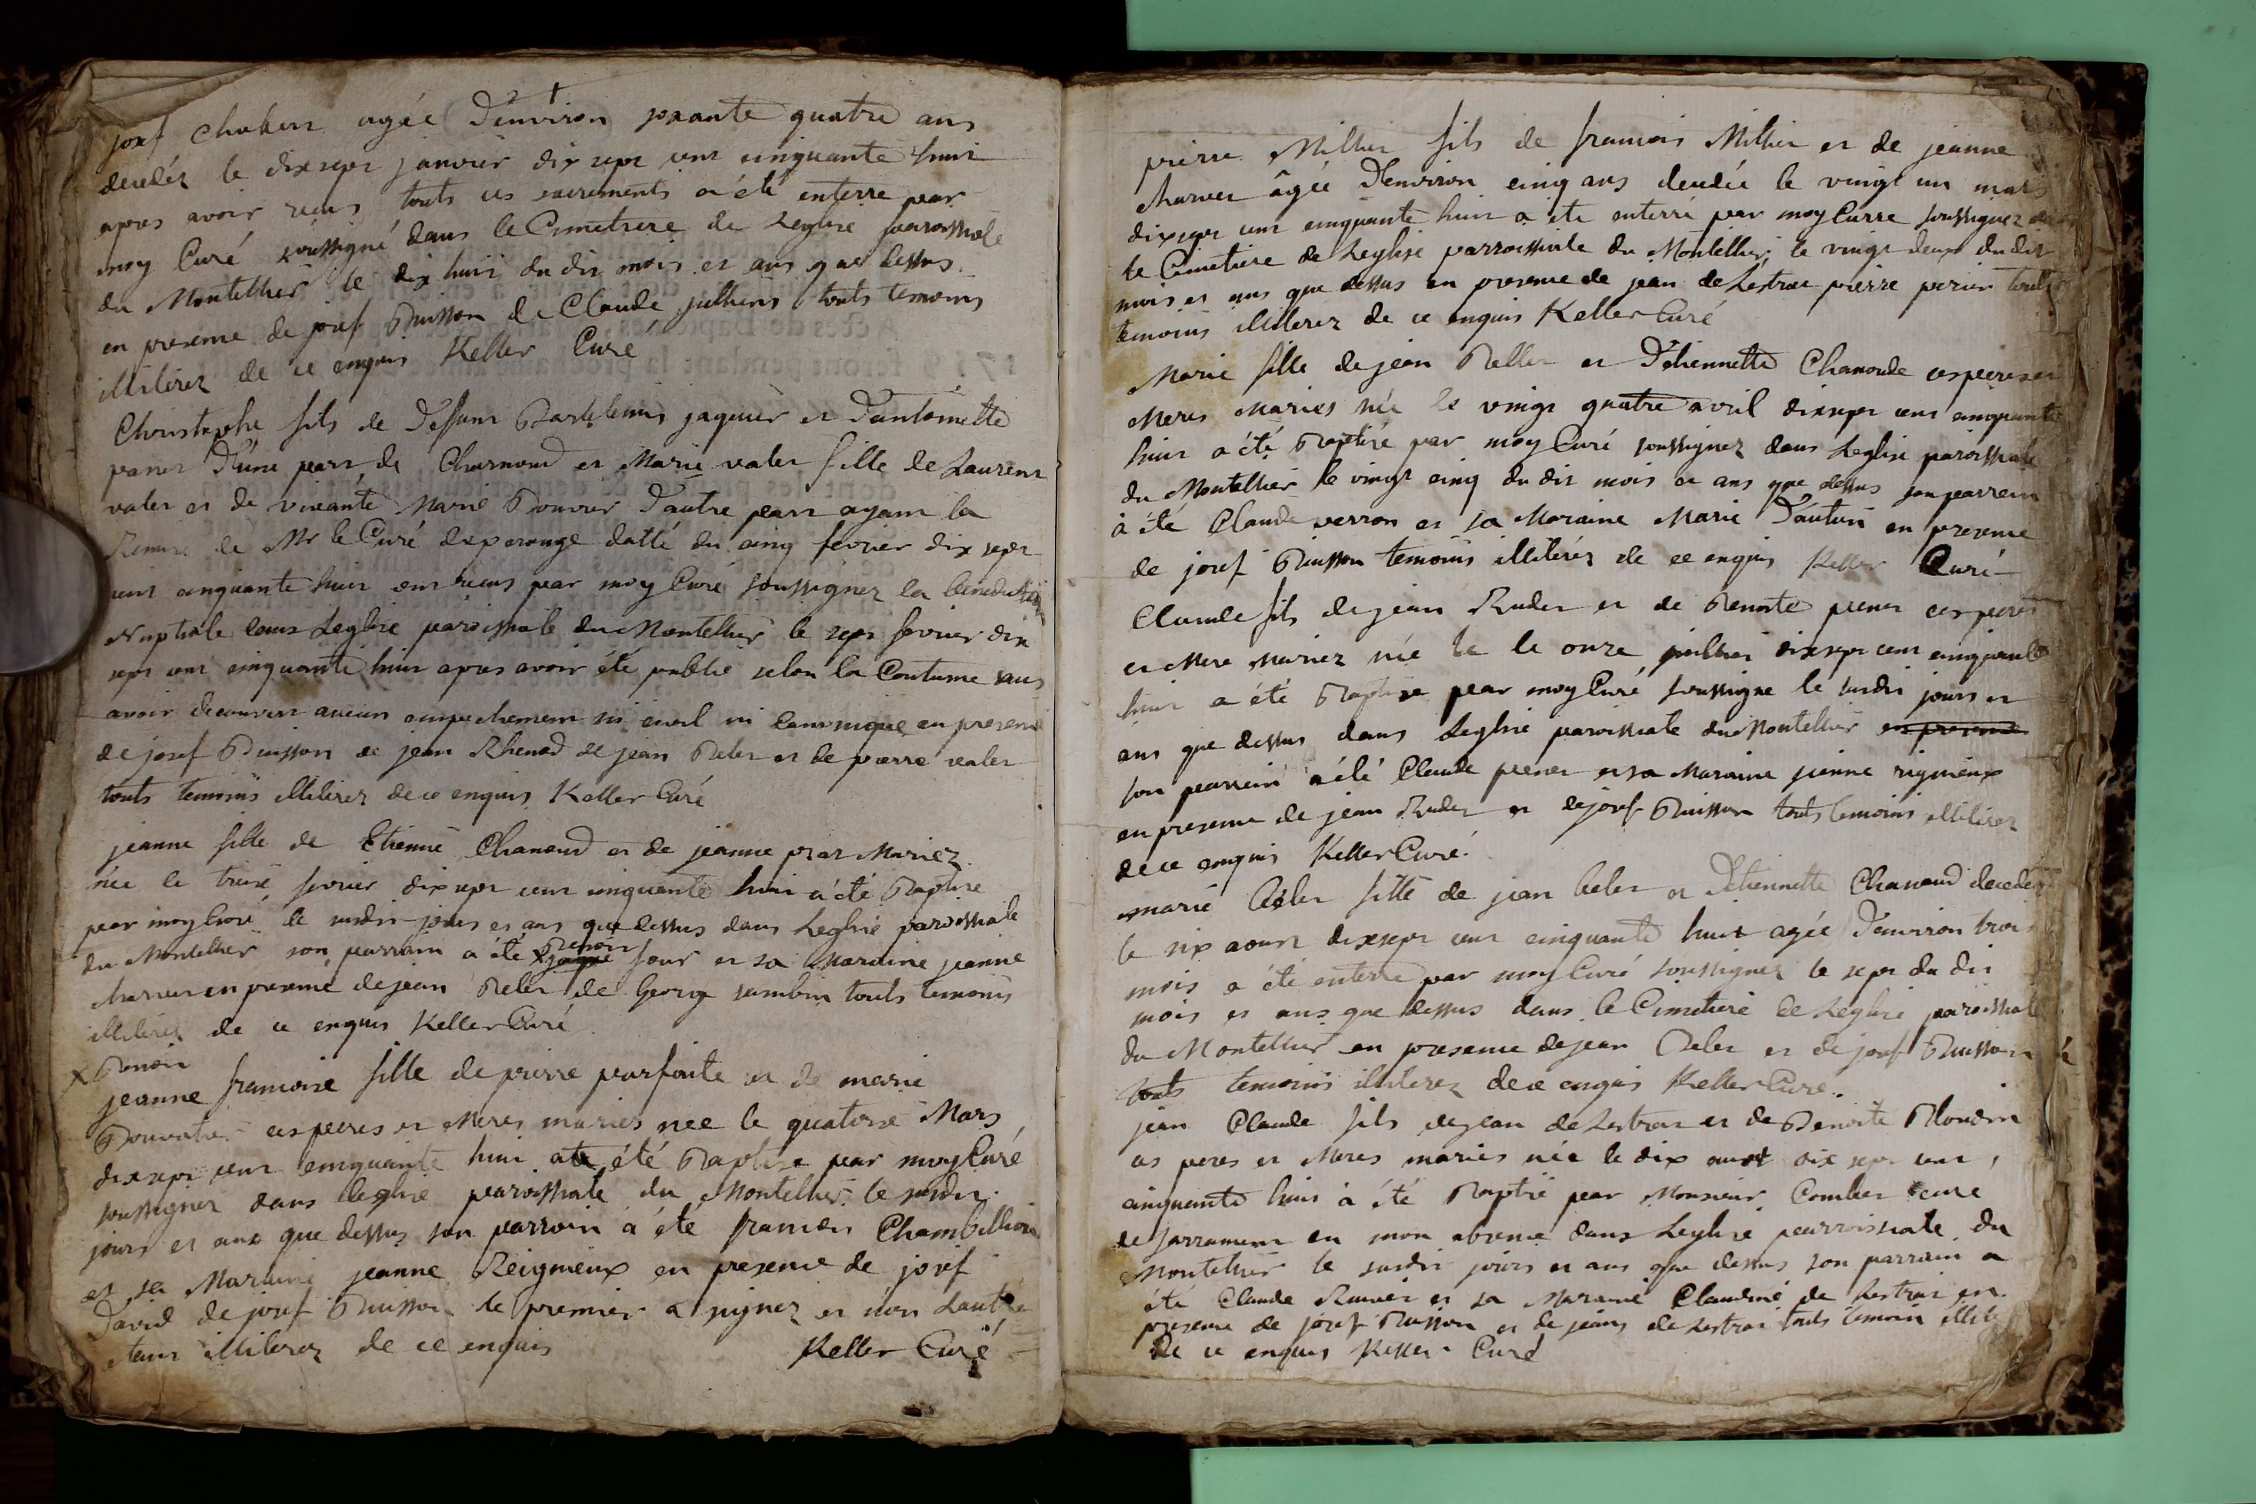 josef Chabin agée D'environ soxante quatre ans
decedéz le dixsept janvier dix sept cent cinquante huit
apres avoir recus touts ces sacrements a été enterre par
moy Curé soussigné dans le Cimetiere de Leglise paroissiale
du Montellier le dix huit du dit mois et ans que dessus
en presence de josef Buisson de Claude jullien touts temoins
illiterez de ce enquis Keller Curé
Christophe fils de Deffunt Barthelemis jaquier et D'antoinette
D'une part de Charnoud et Marie valer fille de Laurent
valer et de vivante Marie Bouvier D'autre part ayant la
Remise de Mr le Curé de perouge datté du cinq fevrier dix sept
cent cinquante huit ont recus par moy Curé soussignez la benediction
Nuptiale dans Leglise paroissiale du Montellier le sept fevrier dix
sept cent cinquante huit apres avoir été publié selon la Coutume sans
avoir decouvert aucun empechement ni civil ni Canonique en presence
de josef Buisson de jean Rhenod de jean Beler et de pierre valer
touts temoins illiterez de ce enquis Keller Curé
jeanne fille de Etienne Chanoud et de jeanne prat Mariez
née le treize fevrier dix sept cent cinquante huit a été Baptise
par moy Curé le susdit jours et ans que dessus dans Leglise paroissiale
Benoit
du Montellier son parrain a été four et sa Maraine jeanne
charvet en presence de jean Beler de George jambon touts temoins
illiterez de ce enquis Keller Curé
x Benoit
jeanne francoise fille de pierre parfaite et de marie
Bouvatier ces peres et Meres mariés née le quatorze Mars
dixsept cent cinquante huit a été Baptise par moy Curé
soussignez dans leglise paroissiale du Montellier le susdit
jours et ans que dessus son parrain a été francois Chambillion
et sa Maraine jeanne Reigmeux en presence de josef
David de josef Buisson le premier a signez et non Lautre
etant illiterez de ce enquis Keller Curé
pierre Millier fils de francois Millier et de jeanne
charvet âgée D'environ cinq ans decedée le vingt un mars
dixsept cent cinquante huit a été enterré par moy Curre soussignez dans
le Cimetiere de Leglise parroissiale du Montellier le vingt deux du dit
mois et ans que dessus en presence de jean de Lestrac pierre perier touts
temoins illiterez de ce enquis Keller Curé
Marie fille de jean Beller et D'etiennette Chanoude ces peres et
Meres Mariés née le vingt quatre avril dixsept cent cinquante
huit a été Baptisé par moy Curé soussignez dans Leglise paroissiale
du Montellier le vingt cinq du dit mois et ans que dessus son parrein
à été Claude verron et sa Maraine Marie D'autun en presence
de josef Buisson temoins illiteréz de ce enquis Keller Curé
Claude fils de jean Ruder et de Benoite prener ces peres
et Mere Mariez née le le onze juillier dixsept cent cinquante
huit a été Baptise par moy Curé soussigne le susdit jours et
ans que dessus dans Leglise paroissiale du Montellier en presence
son parrein a été Claude prener et sa Maraine jeanne rigmeux
en presence de jean Ruder et de josef Buisson touts temoins illiterez
de ce enquis Keller Curé
marie beler fille de jean beler et D'etiennette Chanoud decedez
le six aoust dixsept cent cinquante huit agée D'environ trois
mois a été enterre par moy Curé soussignez le sept du dit
mois et ans que dessus dans le Cimetiere de Leglise paroissiale
du Montellier en presence de jean Beler et de josef Buisson
touts temoins illiterez de ce enquis Keller Curé
jean Claude fils de jean de Lestrac et de Benoite Blondin
ces peres et Meres mariés née le dix aoust dix sept cent
cinquante huit à été Baptisé par Monsieur Combet cure
de sarrament en mon absence dans Leglise parroissiale du
Montellier le susdit jours et ans que dessus son parrain a
été Claude Ruivet et sa Maraine Claudine de Lestrac en
presence de josef Buisson et de jean de Lestrac touts temoin illite
De ce enquis Keller Curé